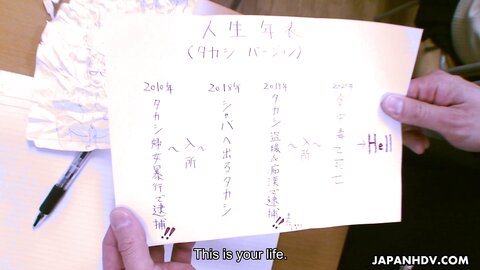 人生年表
(タカシ バージョン)
2010年
タカシ婦女暴行で逮捕!!
～入所～
2018年
シャバへ出るタカシ
2018年
タカシ盗撮&痴漢で逮捕!!
～入所～
→Hell
This is your life.
JAPANHDV.COM